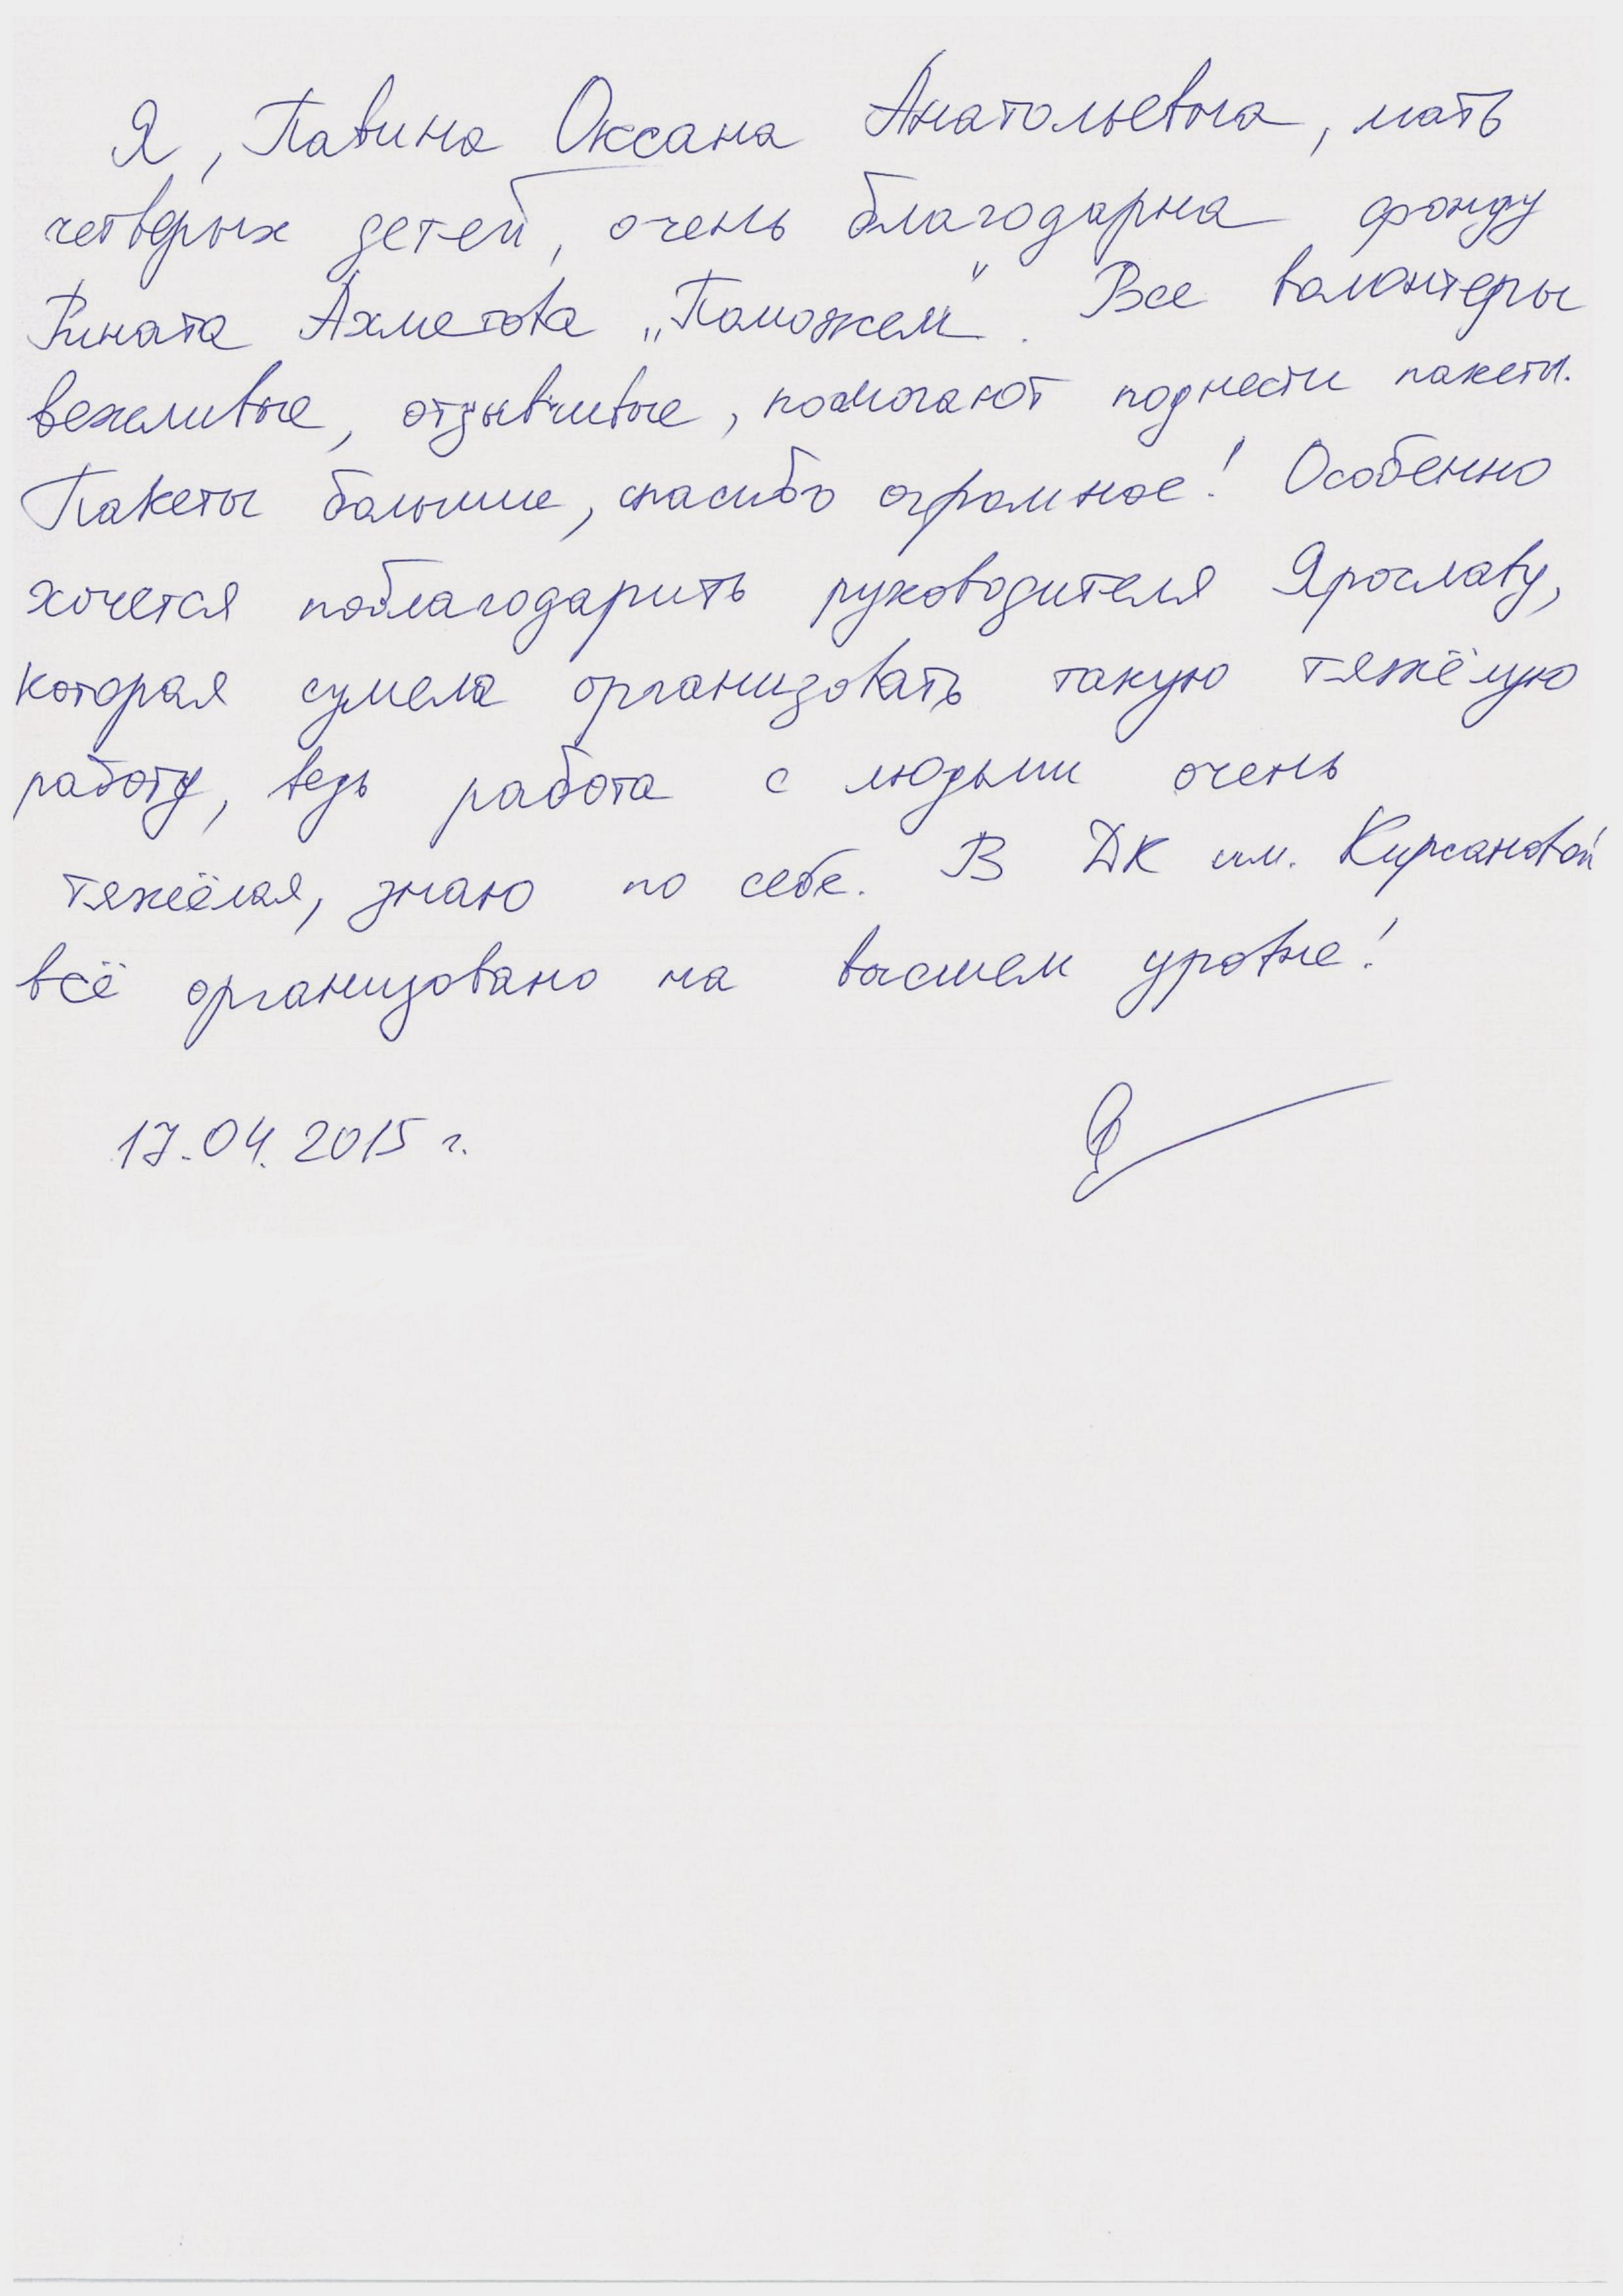 Я, Павина Оксана Анатольевна, мать
четверых детей, очень благодарна фонду
Рината Ахметова „Поможем". Все волонтеры
вежливые, отзывчивые, помогают поднести пакеты.
Пакеты большие, спасибо огромное! Особенно
хочется поблагодарить руководителя Ярославу,
которая сумела организовать такую тяжёлую
работу, ведь работа с людьми очень
тяжёлая, знаю по себе. В ДК им. Кирсановой
всё организовано на высшем уровне!
17.04.2015 г.